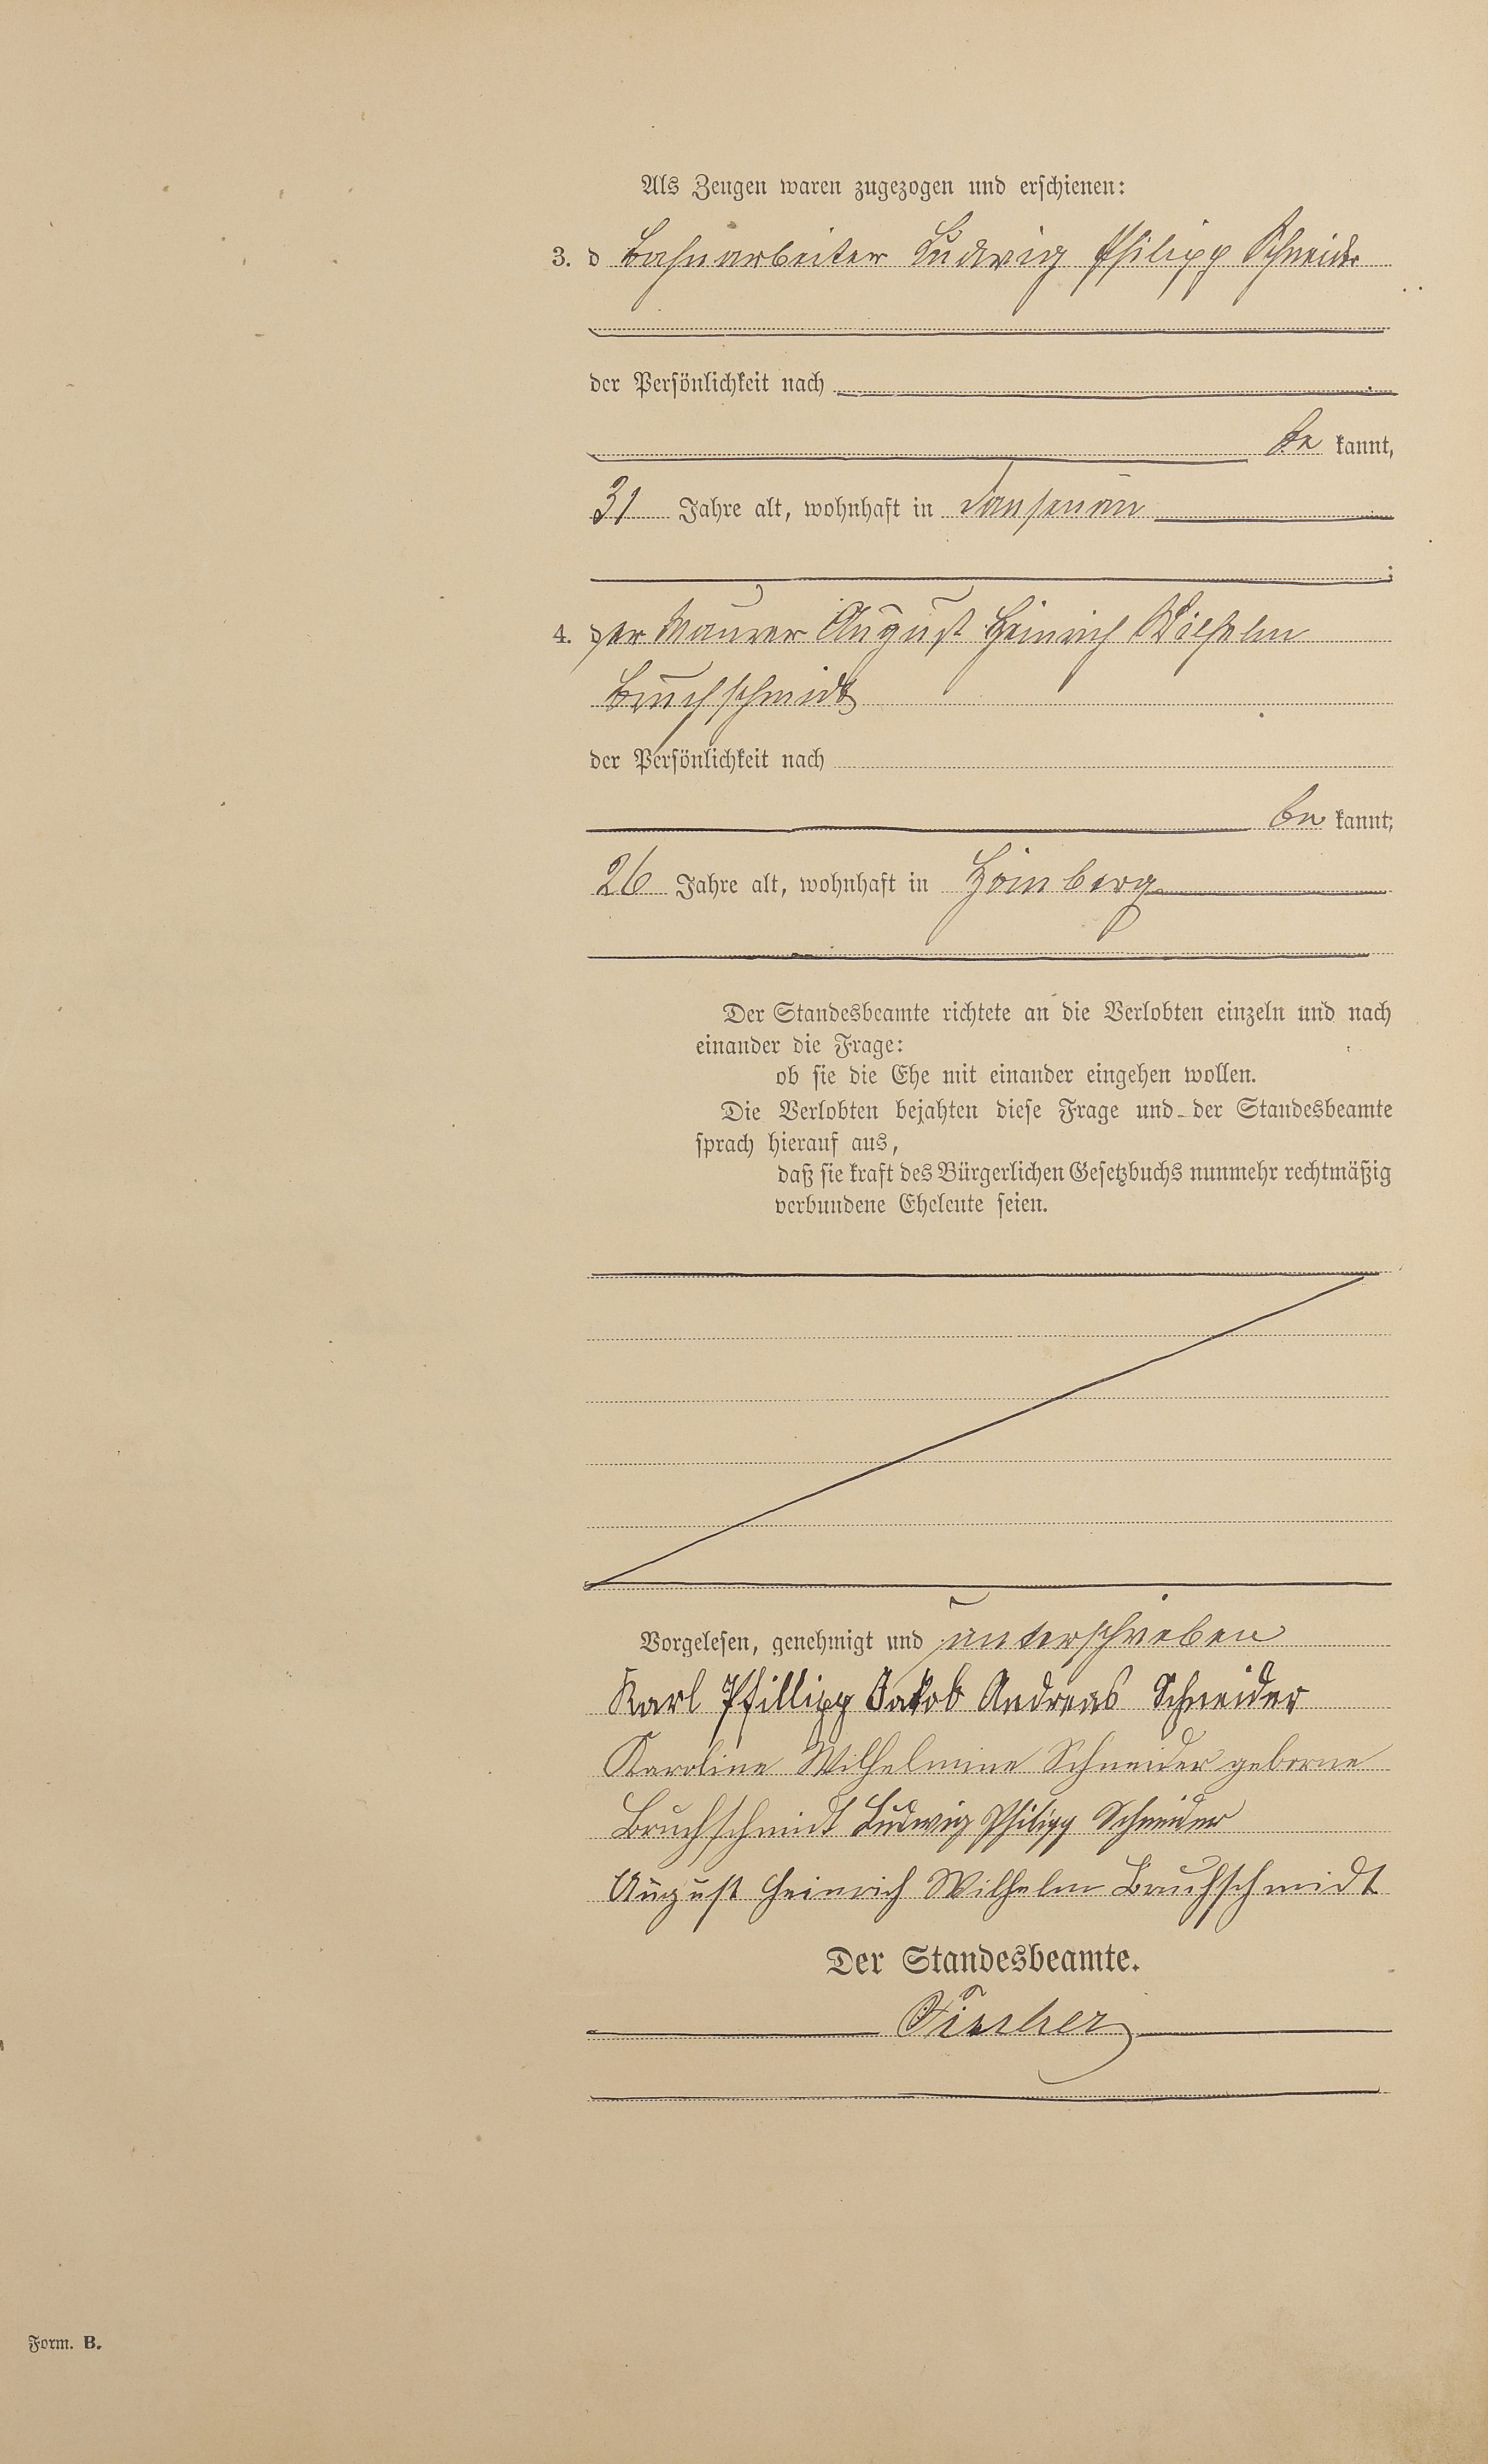 Als Zeugen waren zugezogen und erschienen:
3. d Bahnarbeiter Ludwig Philipp Schneider
der Persönlichkeit nach
be kannt,
31 Jahre alt, wohnhaft in Dausenau
;
4. der Maurer August Heinrich Wilhelm
Bruchschmidt
der Persönlichkeit nach
be kannt;
26 Jahre alt, wohnhaft in Hömberg
Der Standesbeamte richtete an die Verlobten einzeln und nach
einander die Frage:
ob sie die Ehe mit einander eingehen wollen.
Die Verlobten bejahten diese Frage und der Standesbeamte
sprach hierauf aus,
daß sie kraft des Bürgerlichen Gesetzbuchs nunmehr rechtmäßig
verbundene Eheleute seien.
Vorgelesen, genehmigt und unterschrieben
Karl Phillipp Jakob Andreas Schneider
Karoline Wilhelmine Schneider geborne
Bruchschmidt Ludwig Philipp Schneider
August Heinrich Wilhelm Bruchschmidt
Der Standesbeamte.
Fischer
Form. B.